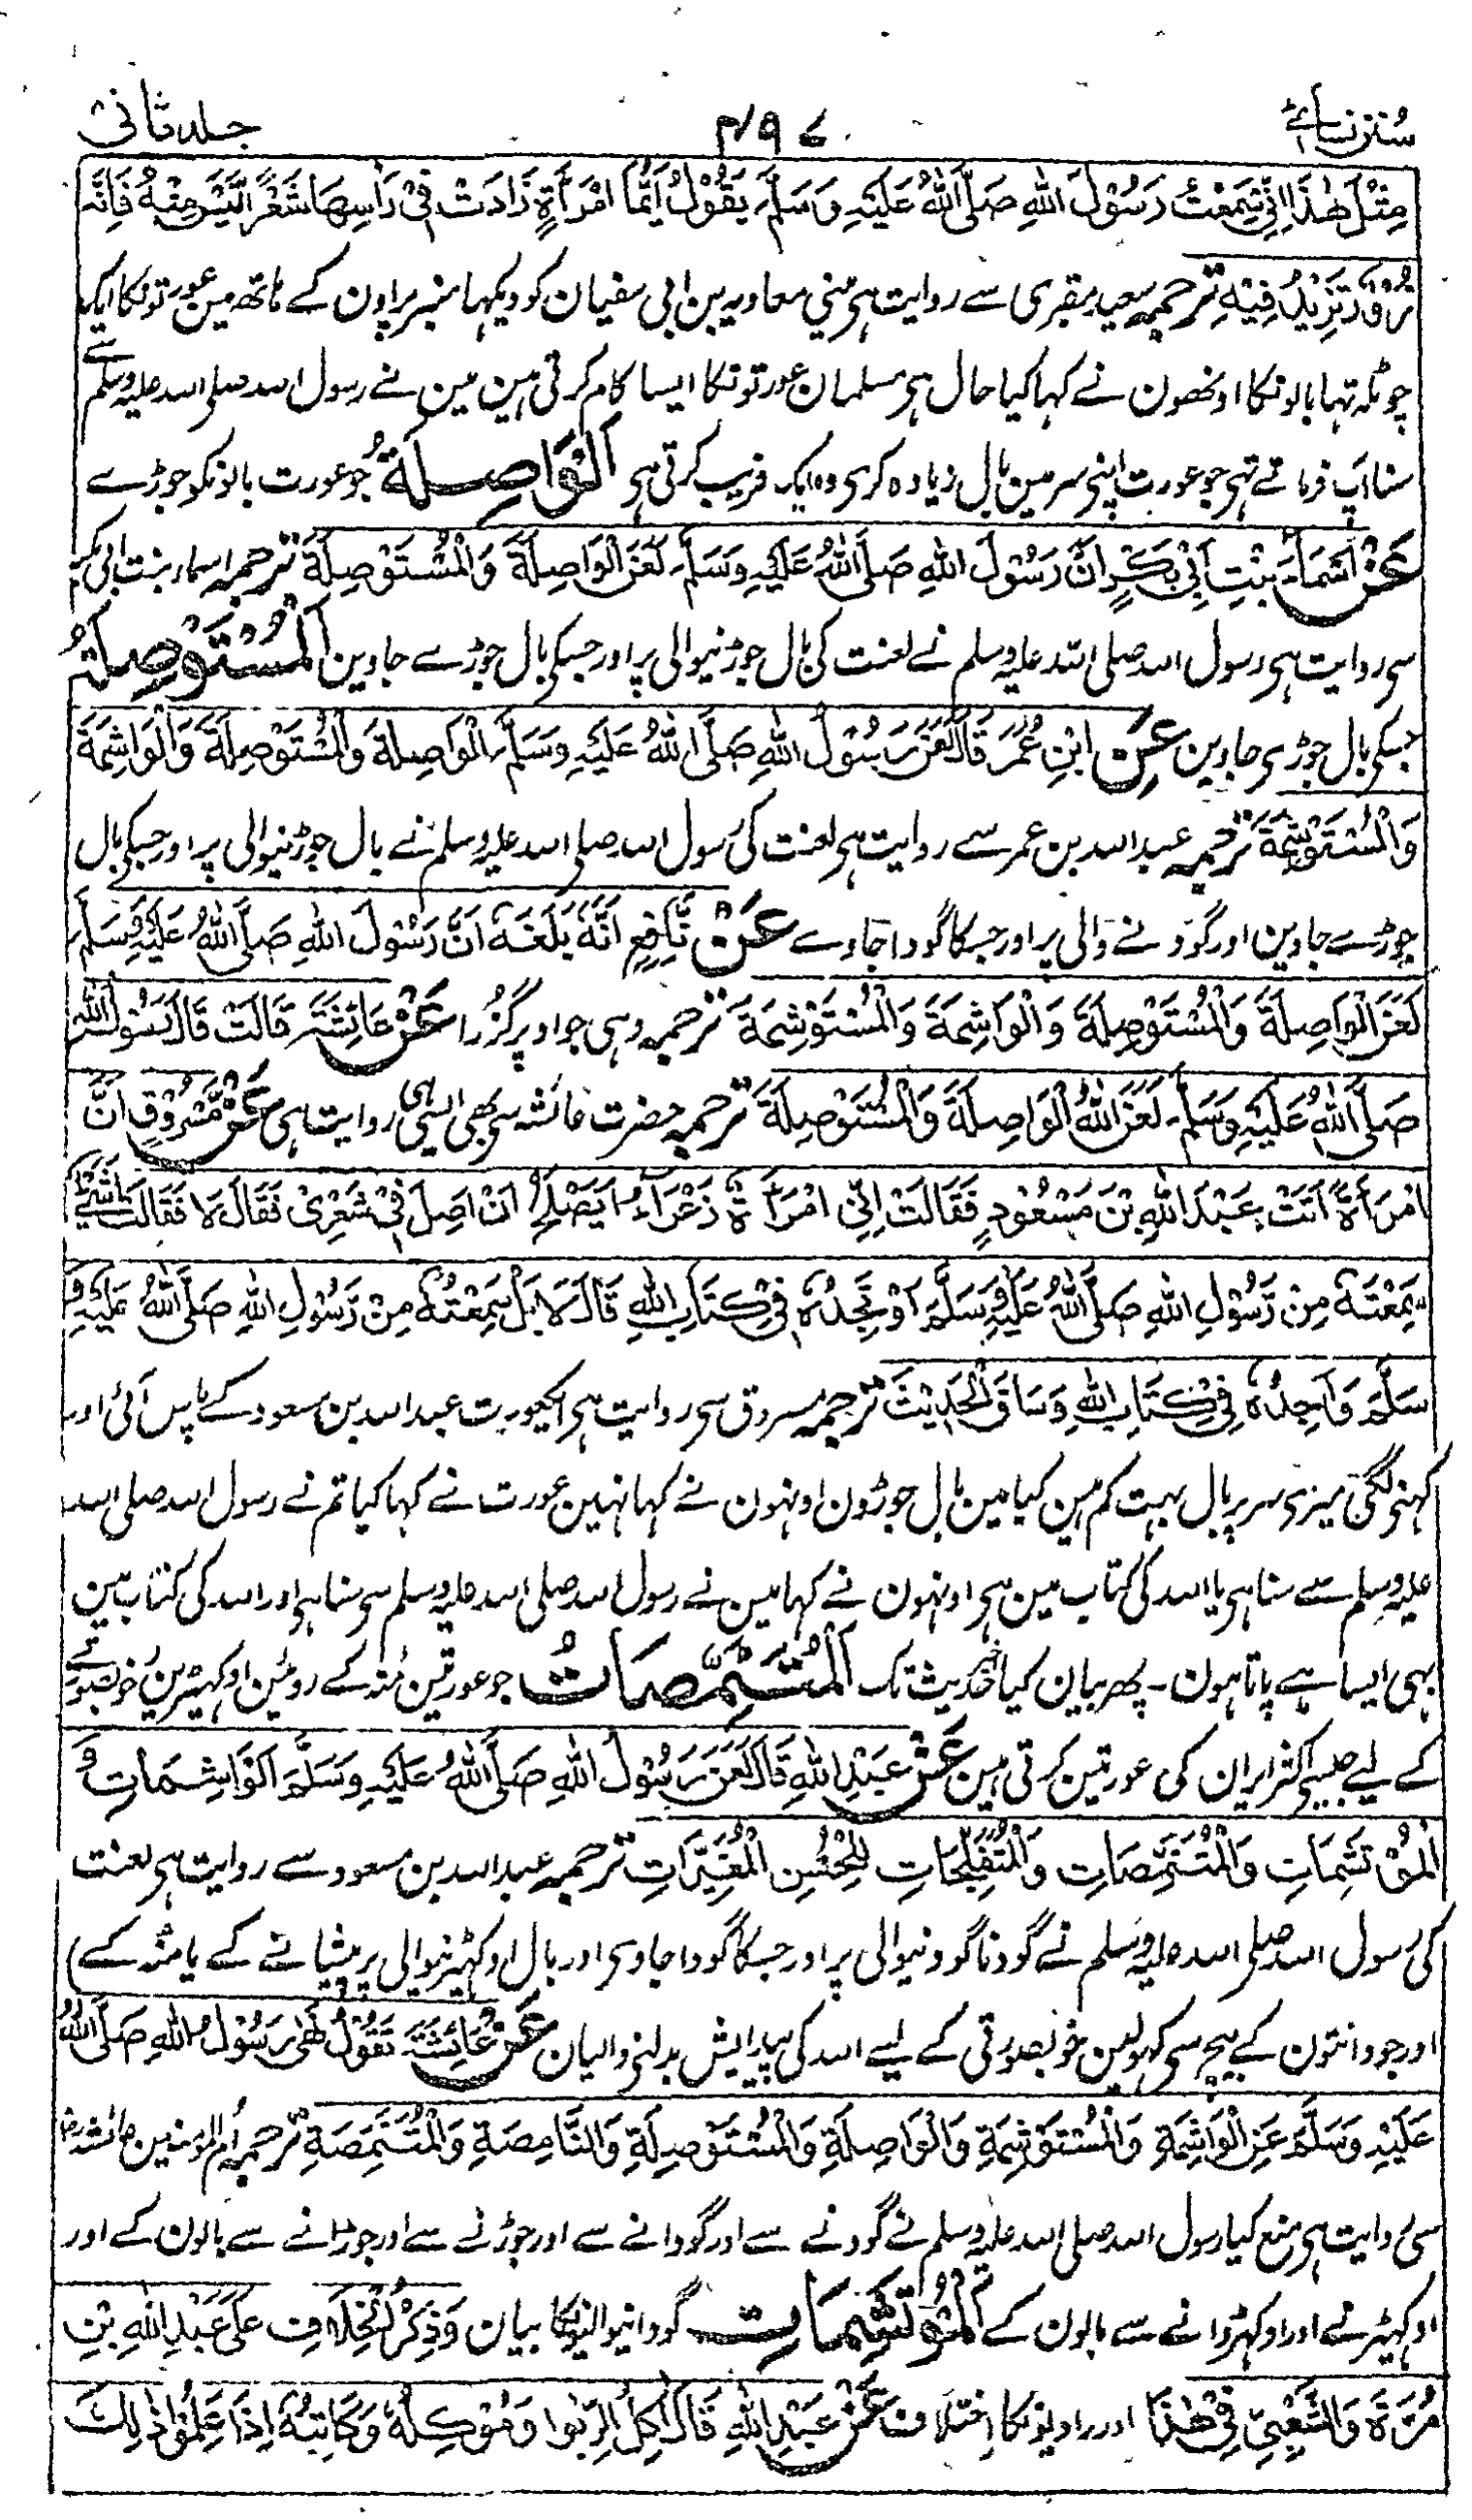 سنن نسائے ۴۹۷ جلد ثانی
مِثْلَ هٰذَا اِنِّیْ سَمِعْتُ رَسُوْلَ اللّٰهِ صَلَّی اللّٰهُ عَلَیْهِ وَسَلَّمَ یَقُوْلُ اَیُّمَا امْرَأَةٍ زَادَتْ فِیْ رَاْسِهَا شَعْرًا لَّیْسَ مِنْهُ فَاِنَّهُ
زُوْرٌ تَزِیْدُ فِیْهِ ترجمہ سعید مقبری سے روایت ہی مینی معاویہ بن ابی سفیان کو دیکہا منبر پر اون کے ہاتھ مین عورتونکا ایک
چوٹلہ تہا بالونکا اونھون نے کہا کیا حال ہی مسلمان عورتونکا ایسا کام کرتی ہین مین نے رسول اللہ صلی اللہ علیہ وسلم سے
سنا آپ فرماتے تہی جو عورت اپنی سر مین بال زیادہ کری وہ ایک فریب کرتی ہی اَلْوَاصِلَةُ جو عورت بالونکو جوڑے
عَنْ اَسْمَآءَ بِنْتِ اَبِیْ بَکْرٍ اَنَّ رَسُوْلَ اللّٰهِ صَلَّی اللّٰهُ عَلَیْهِ وَسَلَّمَ لَعَنَ الْوَاصِلَةَ وَالْمُسْتَوْصِلَةَ ترجمہ اسماء بنت ابی بکر
سی روایت ہی رسول اللہ صلی اللہ علیہ وسلم نے لعنت کی بال جوڑنیوالی پر اور جسکی بال جوڑے جاوین اَلْمُسْتَوْصِلَةُ
جسکی بال جوڑی جاوین عَنِ ابْنِ عُمَرَ قَالَ لَعَنَ رَسُوْلُ اللّٰهِ صَلَّی اللّٰهُ عَلَیْهِ وَسَلَّمَ الْوَاصِلَةَ وَالْمُسْتَوْصِلَةَ وَالْوَاشِمَةَ
وَالْمُسْتَوْشِمَةَ ترجمہ عبد اللہ بن عمر سے روایت ہی لعنت کی رسول اللہ صلی اللہ علیہ وسلم نے بال جوڑنیوالی پر اور جسکی بال
جوڑے جاوین اور گودنے والی پر اور جسکا گودا جاوے عَنْ نَّافِعٍ اَنَّهُ بَلَغَهُ اَنَّ رَسُوْلَ اللّٰهِ صَلَّی اللّٰهُ عَلَیْهِ وَسَلَّمَ
لَعَنَ الْوَاصِلَةَ وَالْمُسْتَوْصِلَةَ وَالْوَاشِمَةَ وَالْمُسْتَوْشِمَةَ ترجمہ وہی جو اوپر گزرا عَنْ عَائِشَةَ قَالَتْ قَالَ رَسُوْلُ اللّٰهِ
صَلَّی اللّٰهُ عَلَیْهِ وَسَلَّمَ لَعَنَ اللّٰهُ الْوَاصِلَةَ وَالْمُسْتَوْصِلَةَ ترجمہ حضرت عائشہ سی بھی ایسی ہی روایت ہی عَنْ مَّسْرُوْقٍ اَنَّ
امْرَأَةً اَتَتْ عَبْدَ اللّٰهِ بْنَ مَسْعُوْدٍ فَقَالَتْ اِنِّیْ امْرَأَةٌ زَعْرَآءُ اَیَصْلُحُ اَنْ اَصِلَ فِیْ شَعْرِیْ فَقَالَ لَا فَقَالَتْ اَشَیْءٌ
سَمِعْتَهُ مِنْ رَّسُوْلِ اللّٰهِ صَلَّی اللّٰهُ عَلَیْهِ وَسَلَّمَ اَوْ تَجِدُهُ فِیْ کِتَابِ اللّٰهِ قَالَ لَا بَلْ سَمِعْتُهُ مِنْ رَّسُوْلِ اللّٰهِ صَلَّی اللّٰهُ عَلَیْهِ وَ
سَلَّمَ وَاَجِدُهُ فِیْ کِتَابِ اللّٰهِ وَسَاقَ الْحَدِیْثَ ترجمہ مسروق سی روایت ہی ایکعورت عبد اللہ بن مسعود کے پاس آئی اور
کہنی لگی میری سر پر بال بہت کم ہین کیا مین بال جوڑون اونہون نے کہا نہین عورت نے کہا کیا تم نے رسول اللہ صلی اللہ
علیہ وسلم سے سنا ہی یا اللہ کی کتاب مین ہی اونہون نے کہا مین نے رسول اللہ صلی اللہ علیہ وسلم سی سنا ہی اور اللہ کی کتاب مین
بہی ایسا ہے پاتا ہون ۔ پھر بیان کیا اخیر حدیث تک اَلْمُتَنَمِّصَاتُ جو عورتین مُنہ کے روئین اوکہیڑین خوبصورتے
کے لیے جیسی اکثر ایران کی عورتین کرتی ہین عَنْ عَبْدِ اللّٰهِ قَالَ لَعَنَ رَسُوْلُ اللّٰهِ صَلَّی اللّٰهُ عَلَیْهِ وَسَلَّمَ الْوَاشِمَاتِ وَ
الْمُوْتَشِمَاتِ وَالْمُتَنَمِّصَاتِ وَالْمُتَفَلِّجَاتِ لِلْحُسْنِ الْمُغَیِّرَاتِ ترجمہ عبد اللہ بن مسعود سے روایت ہی لعنت
کی رسول اللہ صلی اللہ علیہ وسلم نے گودنا گودنیوالی پر اور جسکا گودا جاوی اور بال اوکہیڑنیوالی پر پیشانے کے یا منہ کے)
اور جو دانتون کے بیچ سی کہولین خوبصورتی کے لیے اللہ کی پیدایش بدلنی والیان عَنْ عَائِشَةَ تَقُوْلُ نَهٰی رَسُوْلُ اللّٰهِ صَلَّی اللّٰهُ
عَلَیْهِ وَسَلَّمَ عَنِ الْوَاشِمَةِ وَالْمُسْتَوْشِمَةِ وَالْوَاصِلَةِ وَالْمُسْتَوْصِلَةِ وَالنَّامِصَةِ وَالْمُتَنَمِّصَةِ ترجمہ ام المومنین عائشہ
سی روایت ہی منع کیا رسول اللہ صلی اللہ علیہ وسلم نے گودنے سے اور گودانے سے اور جوڑنے سے اور جوڑانے سے بالون کے اور
اوکہیڑنے اور اوکہڑوانے سے بالون کے اَلْمُوْتَشِمَاتِ گودانیوالیونکا بیان وَذِکْرُ الْخِلَافِ عَلٰی عَبْدِ اللّٰهِ بْنِ
مُرَّةَ وَالشَّعْبِیِّ فِیْ هٰذَا اور راویونکا اختلاف عَنْ عَبْدِ اللّٰهِ قَالَ اٰکِلُ الرِّبٰوا وَمُوْکِلُهُ وَکَاتِبُهُ اِذَا عَلِمُوْا ذٰلِكَ